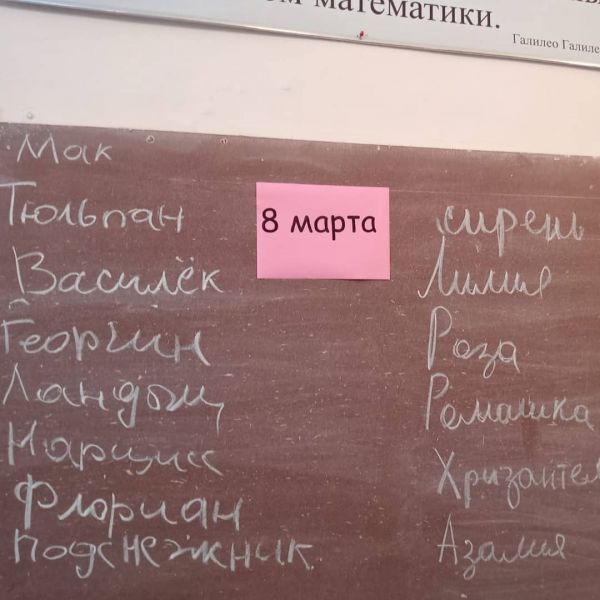 ом математики.
Галилео Галиле
Мак
Тюльпан
Василёк
Георгин
Ландыш
Нарцисс
Флориан
Подснежник.
8 марта
сирень
Лилия
Роза
Ромашка
Хризантем
Азалия